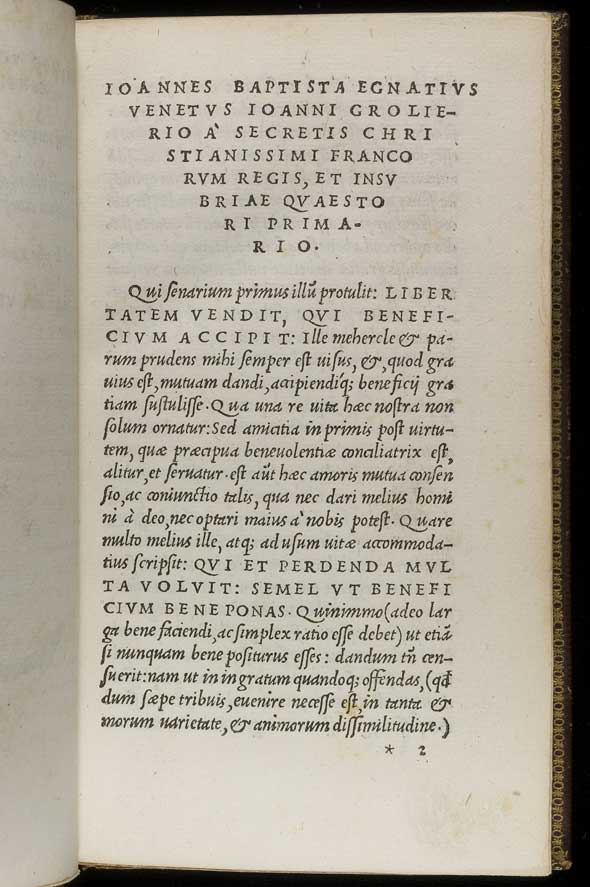 IOANNES BAPTISTA EGNATIVS
VENETVS IOANNI GROLIE-
RIO À SECRETIS CHRI
STIANISSIMI FRANCO
RVM REGIS, ET INSV
BRIAE QVAESTO
RI PRIMA-
RIO.
Qui senarium primus illũ protulit: LIBER
TATEM VENDIT, QVI BENEFI-
CIVM ACCIPIT: Ille mehercle & pa-
rum prudens mihi semper est uisus, &, quod gra
uius est, mutuam dandi, accipiendiq; beneficij gra
tiam sustulisse. Qua una re uita hæc nostra non
solum ornatur: Sed amicitia in primis post uirtu-
tem, quæ præcipua beneuolentiæ conciliatrix est,
alitur, et seruatur. est aũt hæc amoris mutua consen
sio, ac coniunctio talis, qua nec dari melius homi
ni à deo, nec optari maius à nobis potest. Quare
multo melius ille, atq; ad usum uitæ accommoda-
tius scripsit: QVI ET PERDENDA MVL
TA VOLVIT: SEMEL VT BENEFI
CIVM BENE PONAS. Quinimmo (adeo lar
ga bene faciendi, ac simplex ratio esse debet) ut etiã
si nunquam bene positurus esses: dandum tñ cen-
suerit: nam ut in ingratum quandoq; offendas, (qđ
dum sæpe tribuis, euenire necesse est, in tanta &
morum uarietate, & animorum dissimilitudine.)
* 2